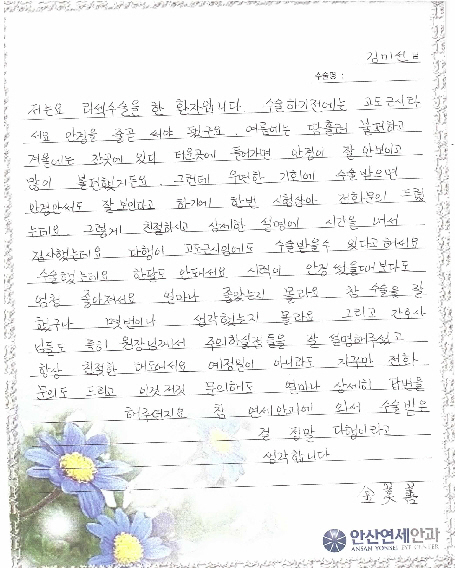 김미선님
수술명 :
저는요 라섹수술을 한 환자입니다. 수술하기전에는 고도근시라
서요 안경을 줄곧 써야 했구요. 여름에는 땀흘려 불편하고
겨울에는 찬곳에 있다 더운곳에 들어가면 안경이 잘 안보이고
많이 불편했거든요. 그런데 우연한 기회에 수술받으면
안경안써도 잘 보인다고 하기에 한번 시험삼아 전화문의 드렸
는데요 그렇게 친절하시고 상세한 설명에 시간을 내서
검사했는데요 다행이 고도근시임에도 수술받을수 있다고하셔요
수술했는데요 한달도 안돼서요 시력이 안경 썼을때보다도
엄청 좋아져서요 얼마나 좋았는지 몰라요 참 수술을 잘
했구나 몇번이나 생각했는지 몰라요 그리고 간호사
님들도 특히 원장님께서 주의하실것들을 잘 설명해주셨고
항상 친절한 태도에서요 예정일이 아니라도 자꾸만 전화
문의도 드리고 이것저것 문의해도 얼마나 상세히 답변을
해주셨지요 참 연세안과에 와서 수술받은
걸 정말 다행이라고
생각합니다
안산연세안과
ANSAN YONSEI EYE CENTER